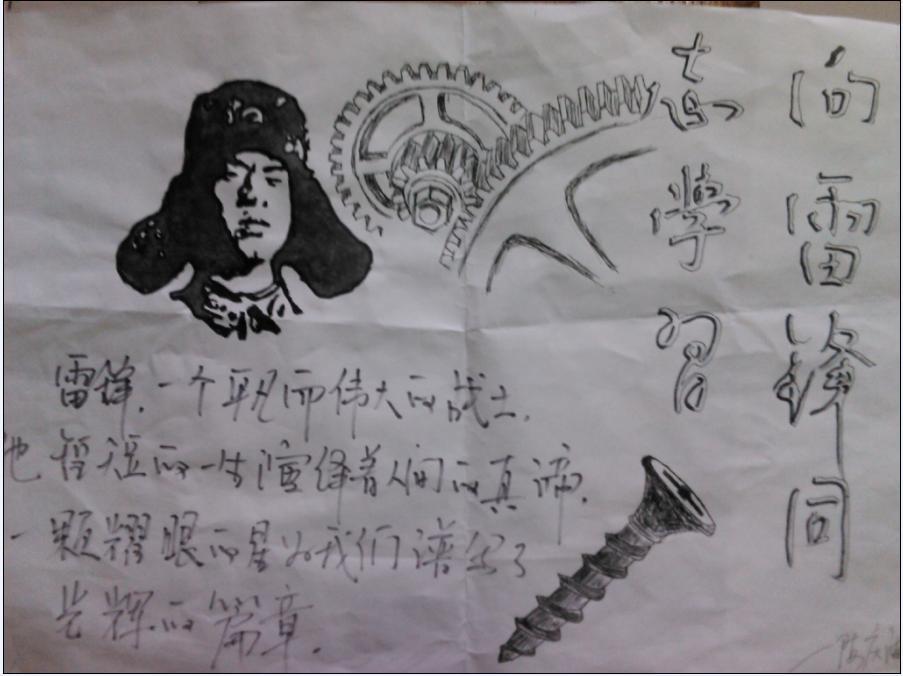 向雷锋同
志學習
雷锋,一个平凡而伟大的战士,
他暂短的一生演绎着人间的真谛.
一颗耀眼的星为我们谱写了
光辉的篇章.